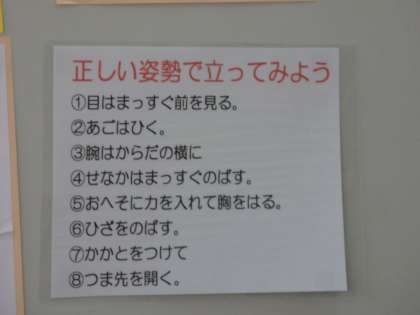 正しい姿勢で立ってみよう
①目はまっすぐ前を見る。
②あごはひく。
③腕はからだの横に
④せなかはまっすぐのばす。
⑤おへそに力を入れて胸をはる。
⑥ひざをのばす。
⑦かかとをつけて
⑧つま先を開く。